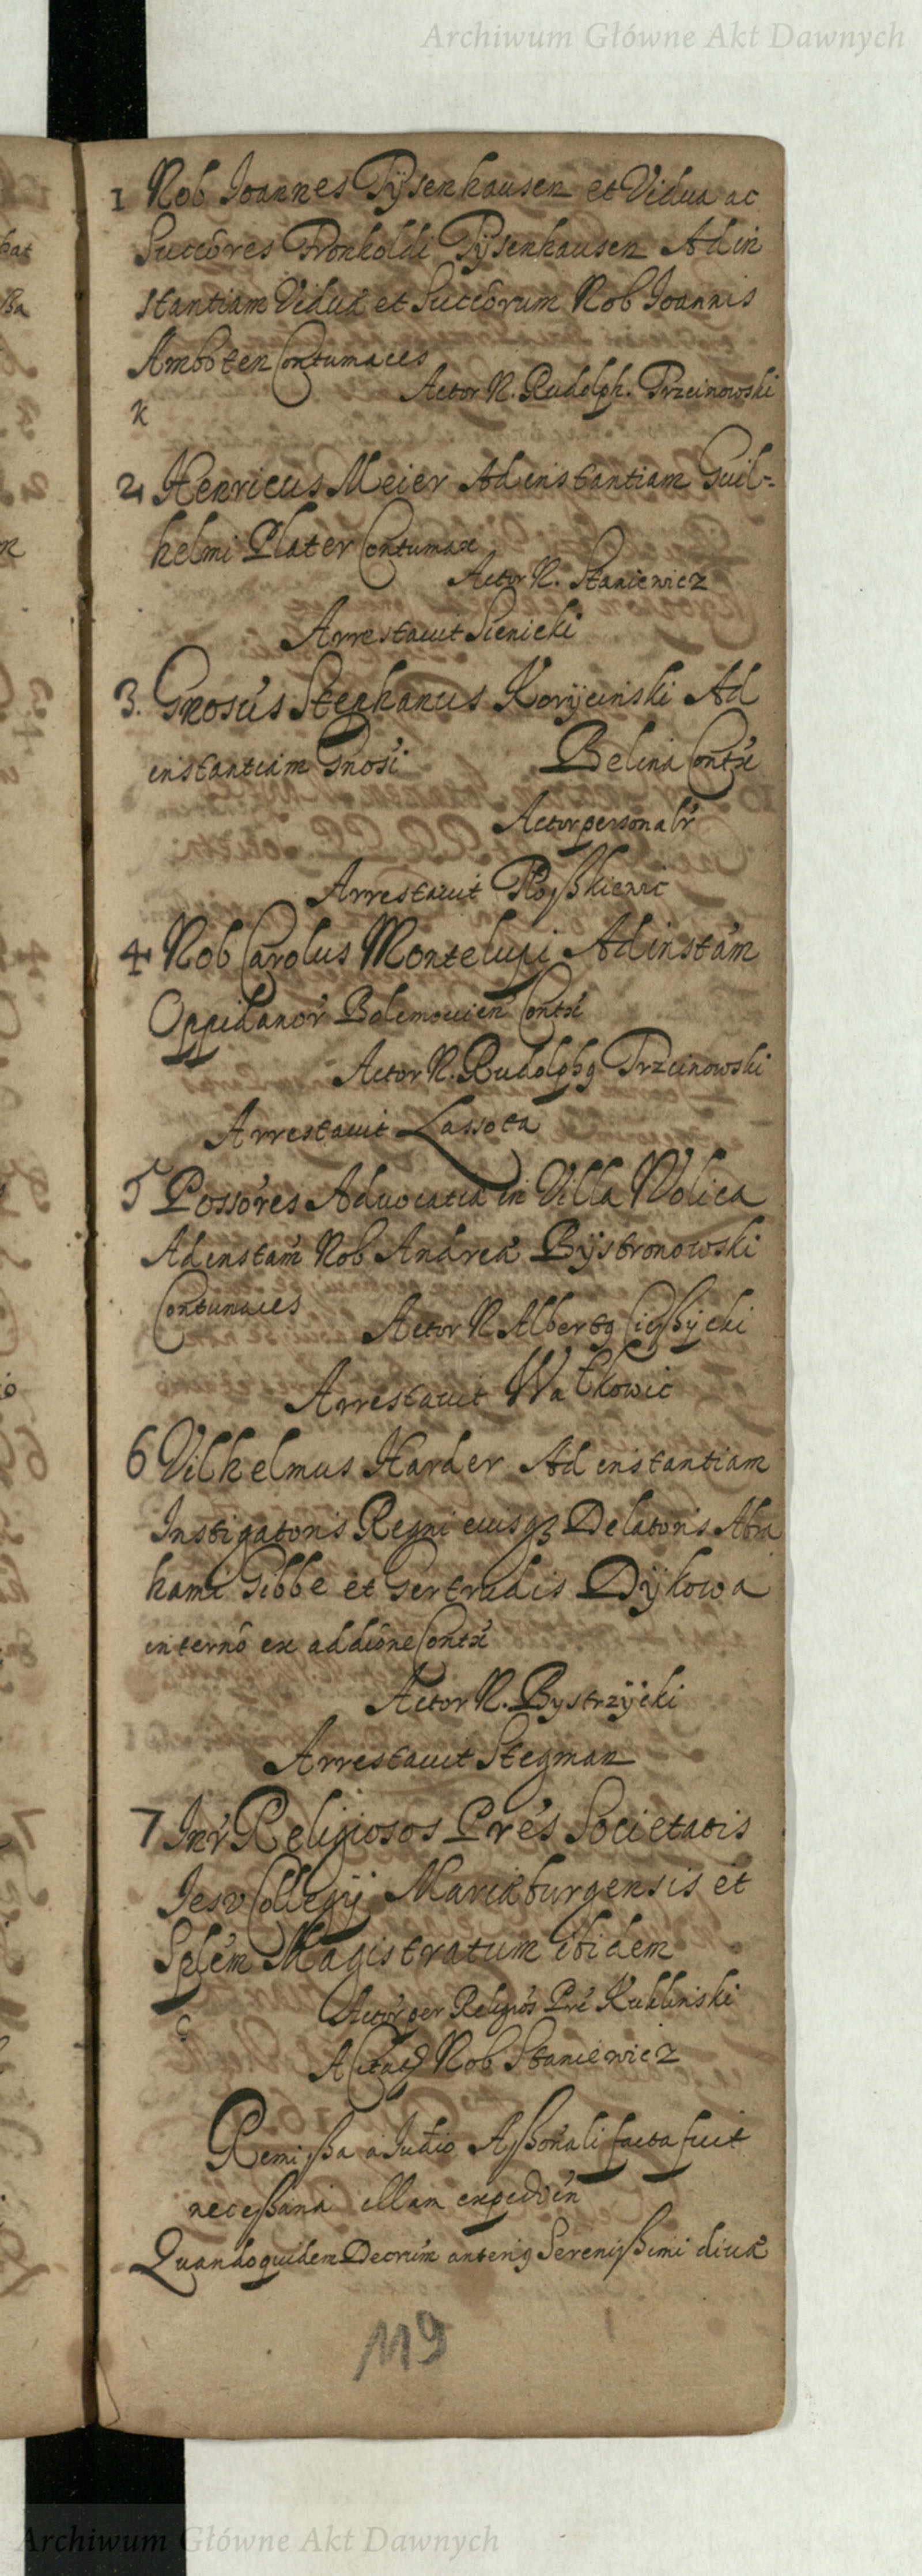 Archiwum Główne Akt Dawnych
1 Nob Joannes Tÿsenhausen et Vidua ac
Succôres Tronholdi Tÿsenhausen Ad in
stantiam Viduæ et Succôrum Nob Joannis
Ambôten Contumaces
Actor N. Rudolph. Trzcinowski
K
2 Henricus Meier Ad instantiam Guil-
helmi Plater Contumax
Actor N. Staniewicz
Arrestavit Sienicki
3. Gnosús Stephanus Korÿcinski Ad
instantiam Gnosi Belina Contx
Actor personalr
Arrestavit
4 Nob Carolus Montelupi Ad instam
Oppidanor Bolemovien Contx
Actor N. Rudolphq Trzcinowski
Arrestavit Lassota
5 Possóres Advocatiæ in Villa Wolica
Ad instam Nob Andreæ Bÿstronowski
Contumaces Actor N Albertq Cießÿcki
Arrestavit Watkowic
6 Vilhelmus Harder Ad instantiam
Instigatoris Regni eiusqȝ Delatoris Abra
hami Gibbe et Gertrudis Dÿkowa
in termô ex addiône Contx
Actor N. Bystrzÿcki
Arrestavit Stegman
7 Intr Religiosos Prês Societatis
Iesv Collegij Mariæburgensis et
Splem Magistratum ibidem
Actor per Religios Prê Kuklinski
Nob Staniewicz
Remissa a Iudio Aßorali facta fuit
necessaria illam expedien
Quandoquidem Decrúm Serenißimi divæ
119
Archiwum Główne Akt Dawnych